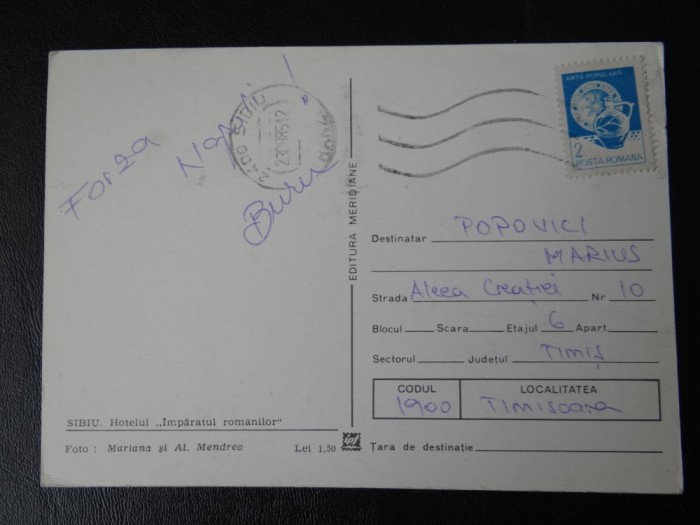 Forza Napoli!
Buru
SIBIU. Hotelul „Împăratul romanilor“
Foto : Mariana și Al. Mendrea Lei 1,50
EDITURA MERIDIANE
2400 SIBIU
ARTĂ POPULARĂ
2
POSTA ROMANA
Destinatar POPOVICI
MARIUS
Strada Aleea Creației Nr 10
Blocul Scara Etajul 6 Apart.
Sectorul Județul TIMIȘ
CODUL LOCALITATEA
1900 TIMISOARA
Țara de destinație